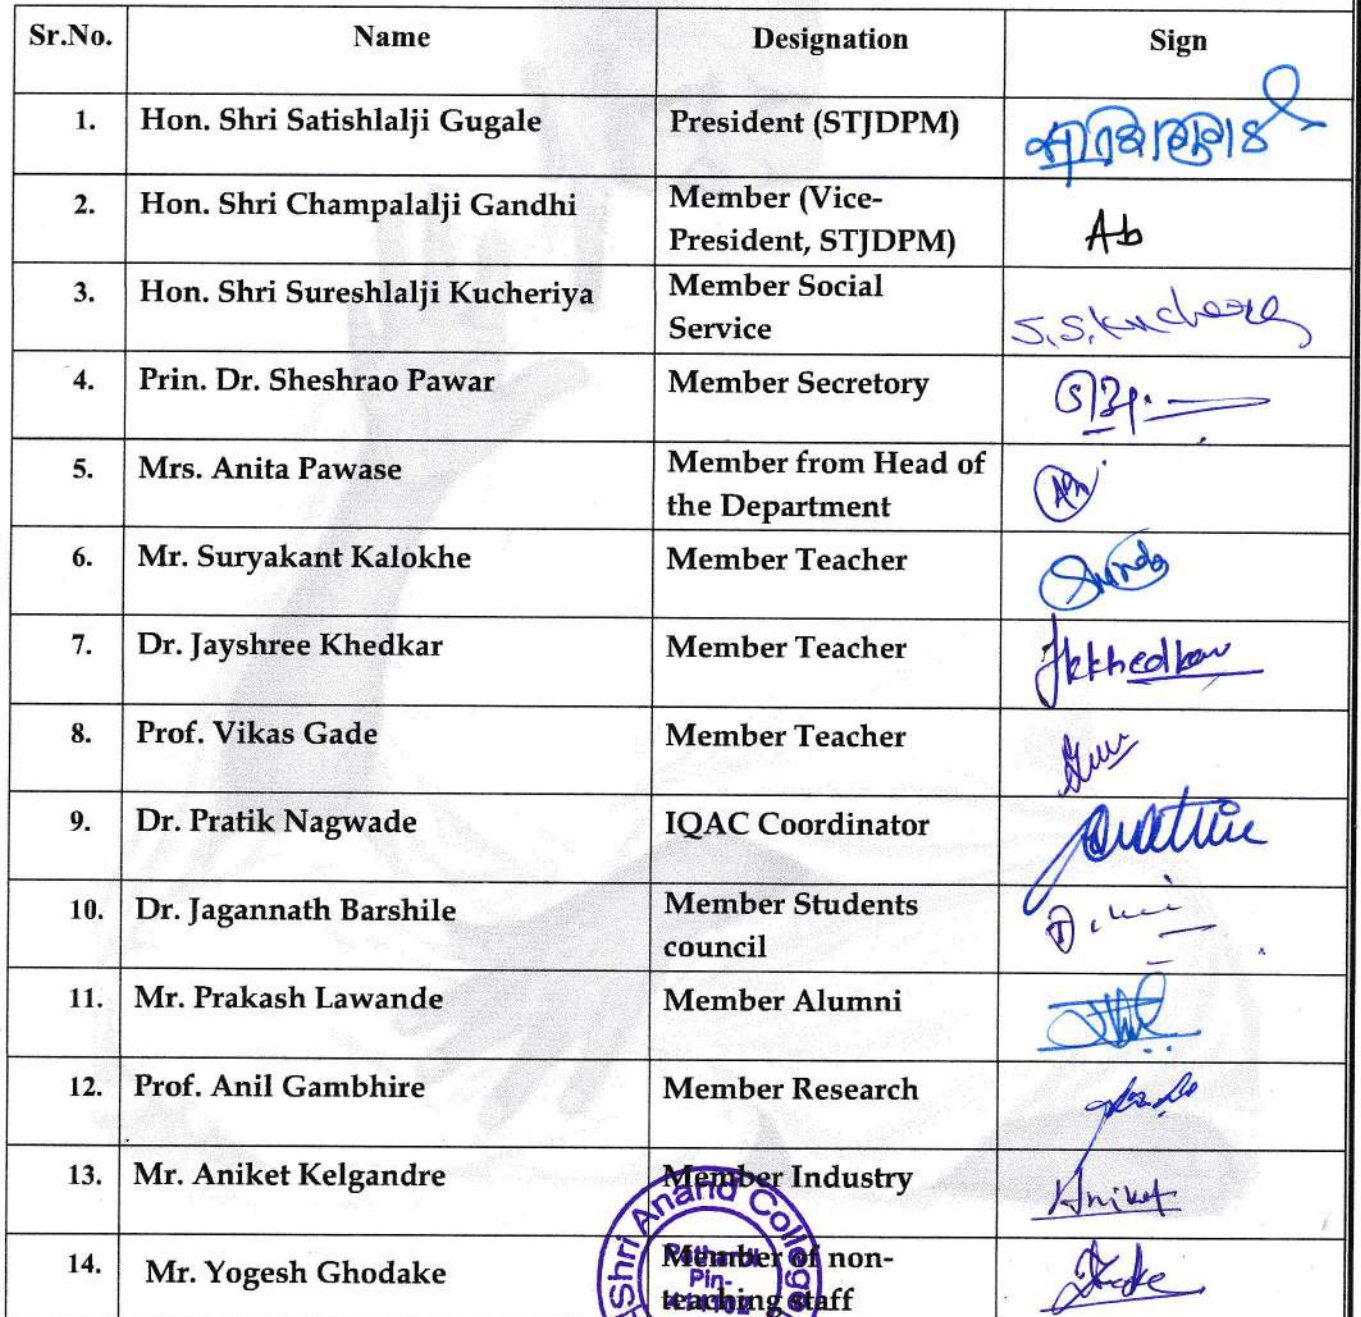 Sr.No. Name Designation Sign
1. Hon. Shri Satishlalji Gugale President (STJDPM)
2. Hon. Shri Champalalji Gandhi Member (Vice-
President, STJDPM) Ab
3. Hon. Shri Sureshlalji Kucheriya Member Social
Service S.S.Kucheria
4. Prin. Dr. Sheshrao Pawar Member Secretory
5. Mrs. Anita Pawase Member from Head of
the Department
6. Mr. Suryakant Kalokhe Member Teacher
7. Dr. Jayshree Khedkar Member Teacher Jkkhedkar
8. Prof. Vikas Gade Member Teacher
9. Dr. Pratik Nagwade IQAC Coordinator
10. Dr. Jagannath Barshile Member Students
council
11. Mr. Prakash Lawande Member Alumni
12. Prof. Anil Gambhire Member Research
13. Mr. Aniket Kelgandre Member Industry Aniket
14. Mr. Yogesh Ghodake Member of non-
teaching staff
Shri Anand College
Pin-